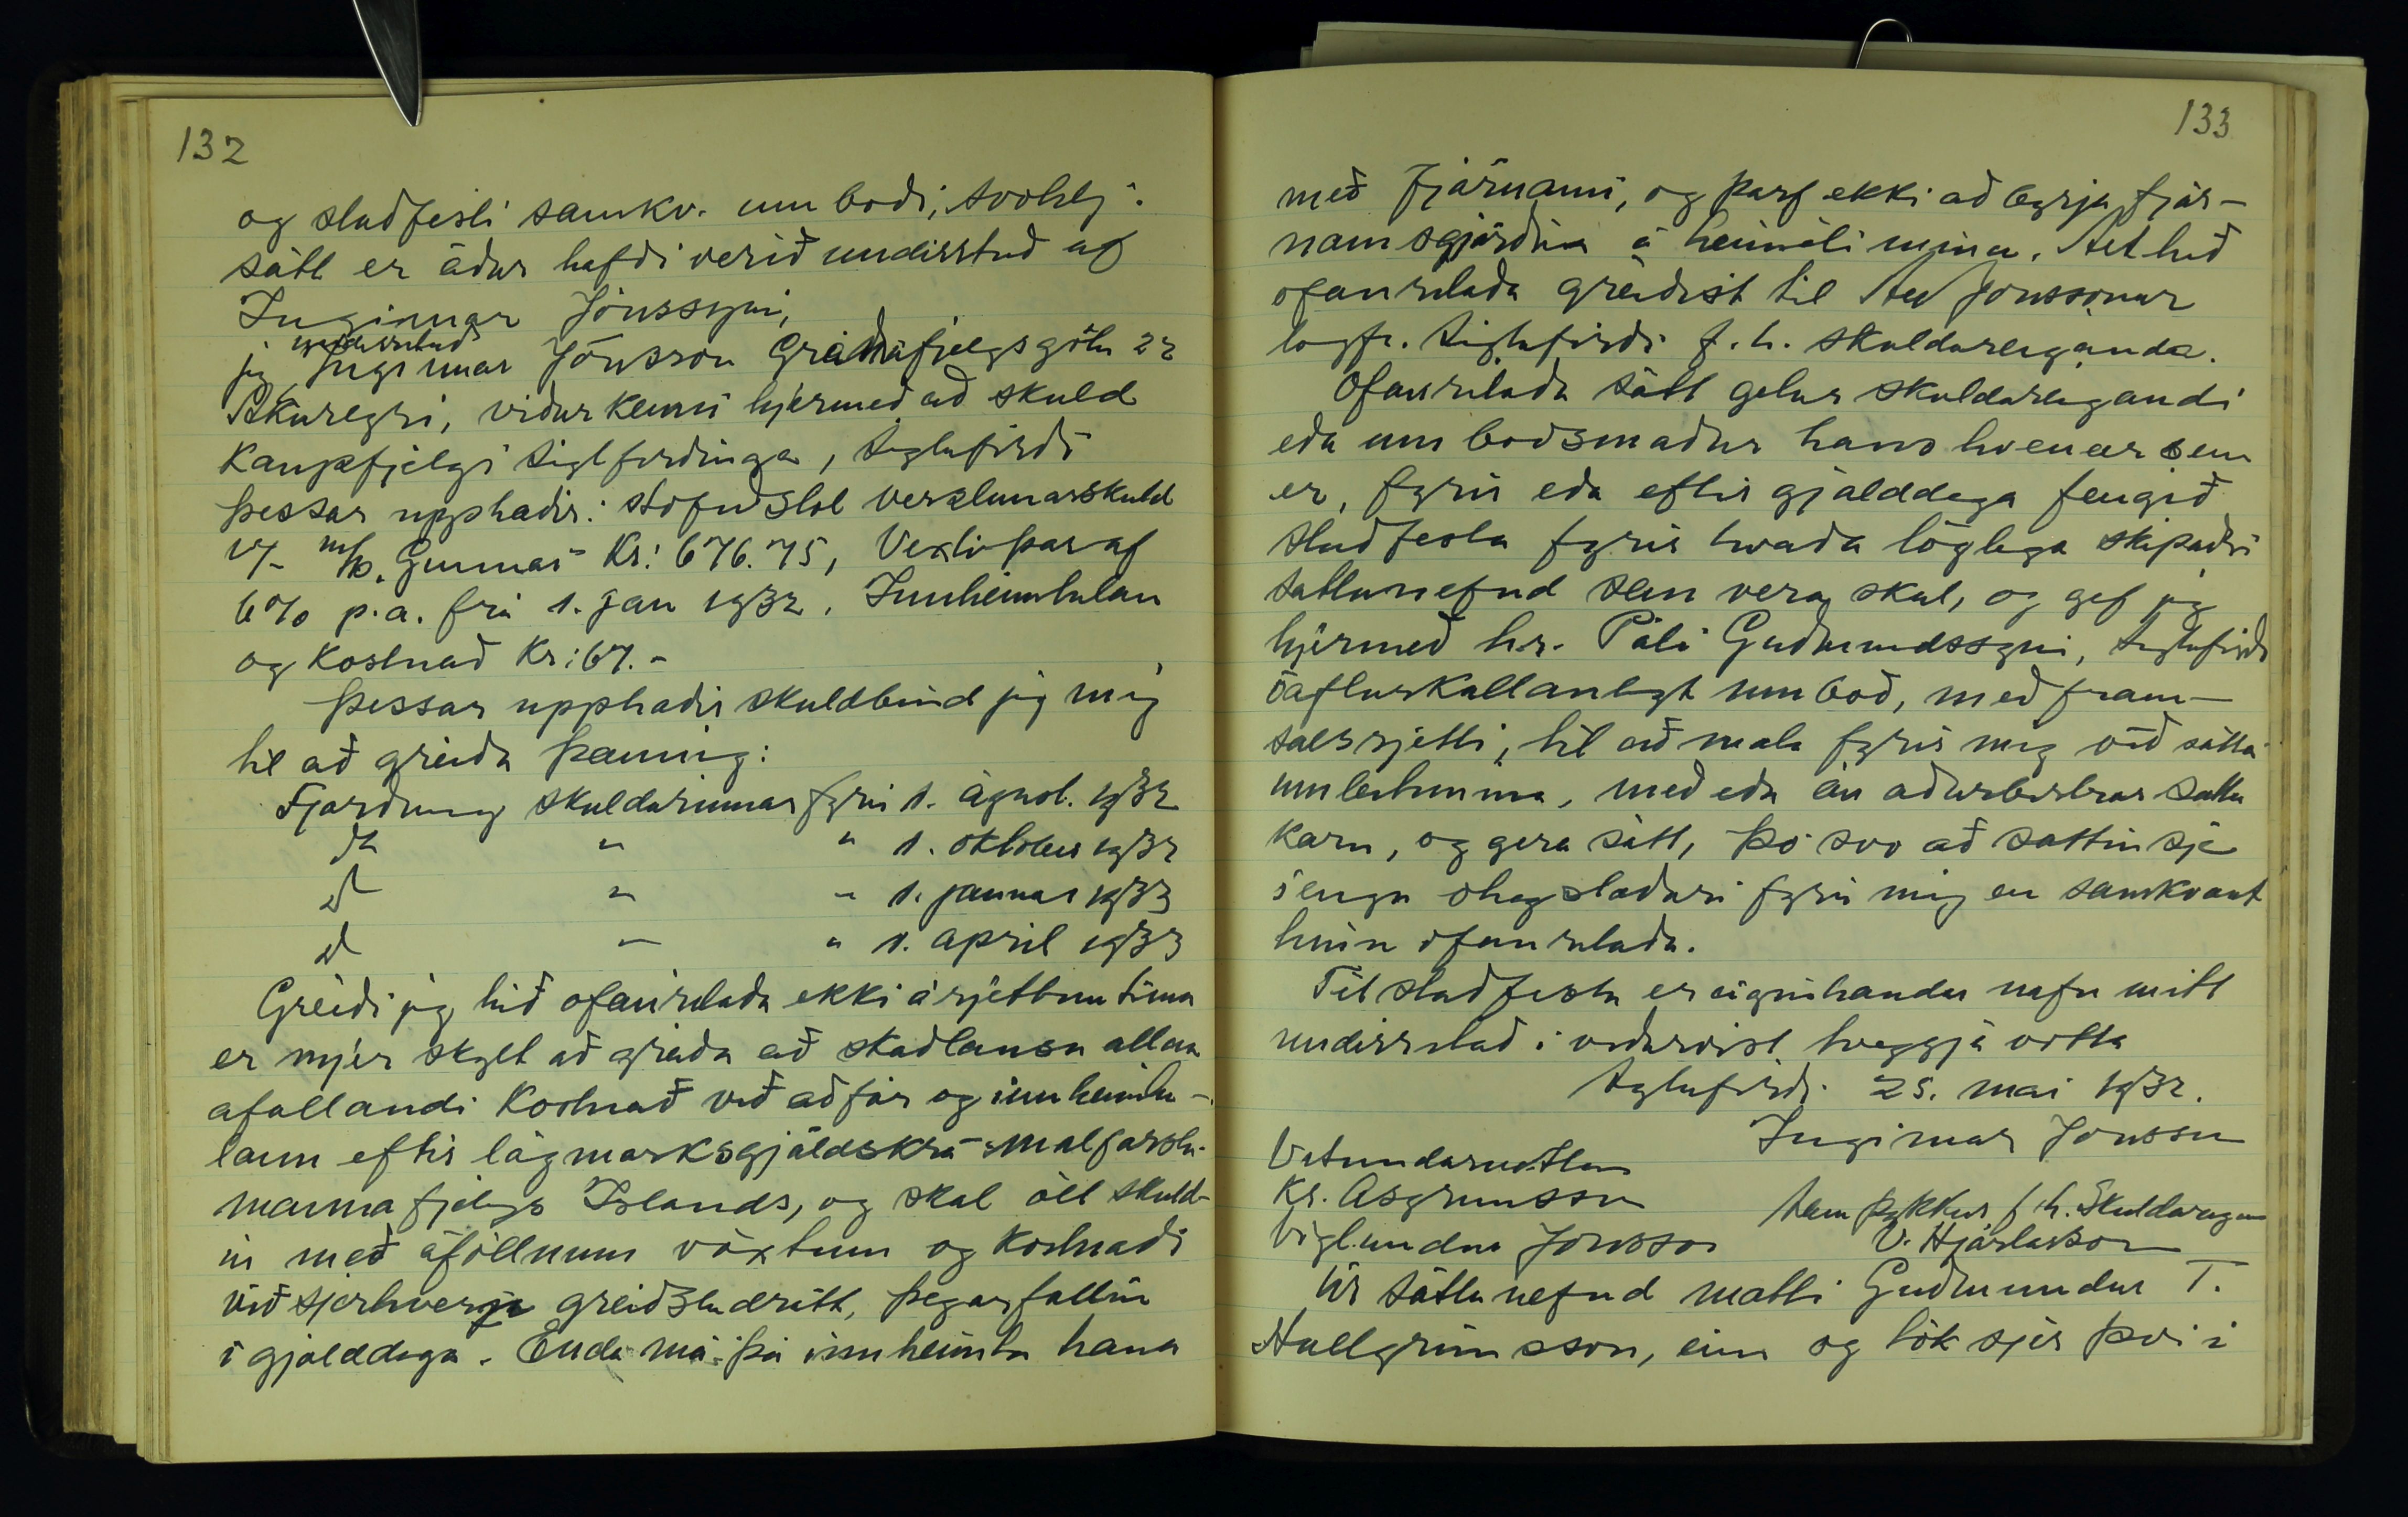 132
og staðfesti samkv. umboði, svohlj.
sátt er áður hafði verið undirrituð af
Ingimar Jónssyni,
undirritaður
jeg Ingimar Jónsson Gránufjelgsgötu 22
Akureyri, viðurkenni hjermeð að skuld
Kaupfjelgi Siglfirðinga, Siglufirði
þessar upphæðir: Höfuðstól verzlunarskuld
v/- m/b. Gunnar Kr: 676.75, Vexti þar af
6% p.a. frá 1. jan 1932. Innheimtulaun
og kostnað Kr: 67.-
Þessar upphæðir skuldbind jeg mig
til að greiða þannig:
Fjórðung skuldarinnar fyrir 1. ágúst. 1932
do " " 1. október 1932
do " " 1. janúar 1933
do " " 1. apríl 1933
Greiði jeg hið ofanritaða ekki á rjettum tíma
er mjer skylt að greiða að skaðlausu allan
áfallandi kostnað við aðför og innheimtu-
laun eftir lágmarksgjaldskrá Málfærslu-
mannafjelags Íslands, og skal öll skuld-
in með áföllnum vöxtum og kostnaði
við sjerhverju greiðsludrátt, þegar fallin
í gjalddaga. Enda má þá innheimta hana
133
með fjárnámi, og þarf ekki að byrja fjár-
námsgjörðina á heimili mínu. Alt hið
ofanritaða greiðist til Jónssonar
lögfr. Siglufirði f. h. skuldareiganda.
Ofanritaða sátt getur skuldareigandi
eða umboðsmaður hans hvenær sem
er, fyrir eða eftir gjalddaga fengið
staðfesta fyrir hvaða löglega skipaðri
sáttanefnd sem vera skal, og gef jeg
hjermeð hr. Páli Guðmundssyni, Siglufirði
óafturkallanlegt umboð, með fram-
salsrjetti, til að mæta fyrir mig við sátta-
umleitunina, með eða án aðurbirtrar sátta
kæru, og gera sátt, þó svo að sáttin sje
í engu óhagstæðari fyrir mig en samkvæmt
hinu ofanritaða.
Til staðfestu er eiginhandar nafn mitt
undirritað í viðurvist tveggja votta
Siglufirði 25. maí 1932.
Ingimar Jónsson
Vitundarvottar
Kr. Ásgrímsson
Samþykkur f. h. Skuldareiganda
Víglundur Jónsson
V. Hjartarson
Úr sáttanefnd mætti Guðmundur T.
Hallgrímsson, einn og tók sjer því í